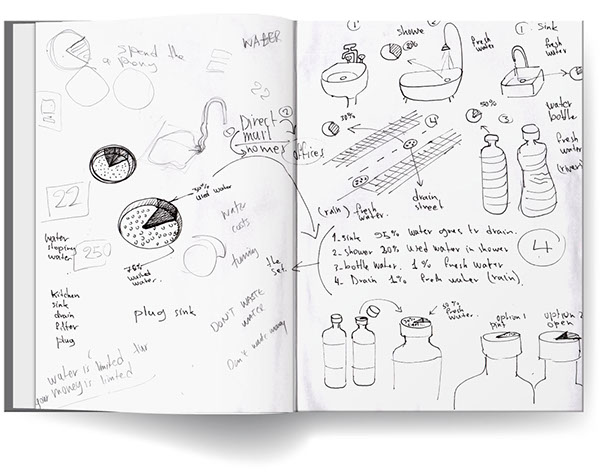 spend the
a pony
WATER
22
250
Direct
mail
homes
offices
2
30%
used water
75%
wasted
water.
water
stoping
water
Kitchen
sink
drain
filter
plug
plug sink
water
costs
turning
DON'T WASTE
WATER
Don't waste money
water is limited
your money is limited
the
set.
1
2
showe
fresh
water
1 sink
fresh
water
30%
4
50%
3
water
bottle
fresh
water
(river)
drain
street
(rain) fresh
water.
1. sink 95% water goes to drain.
2. shower 30% used water in shower
3. bottle water. 1% fresh water
4. Drain 1% fresh water (rain).
4
fresh
water.
option 1
print
option 2
open